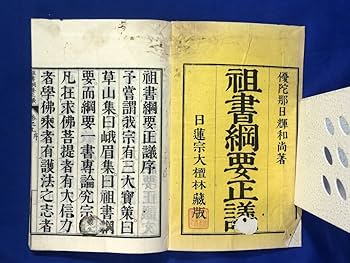 優陀那日輝和尚著
祖書綱要正議
日蓮宗大檀林藏版
祖書綱要正議序
予嘗謂我宗有三大寶策曰
草山集曰峨眉集曰祖書綱
要而綱要一書專論究宗
凡在求佛菩提者有大信力
者學佛乘者有護法之志者